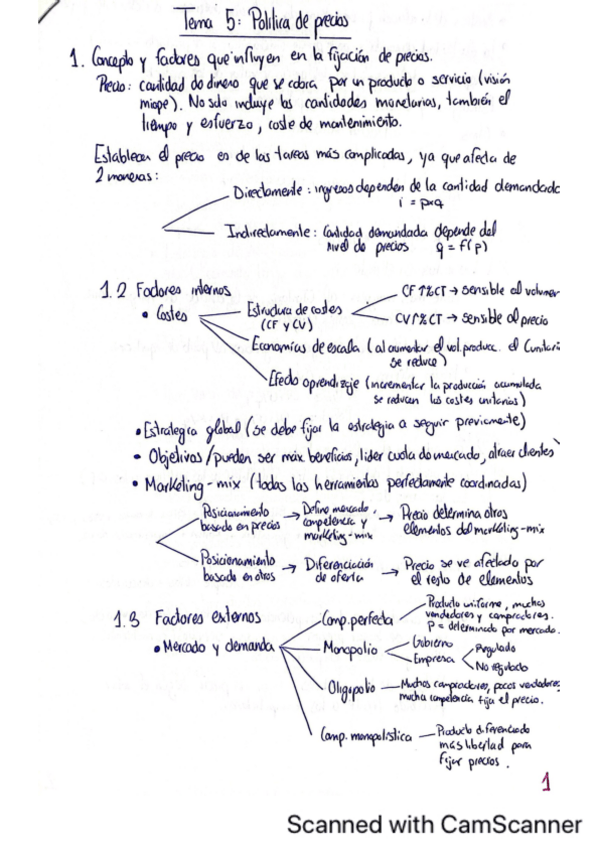 Tema 5: Política de precios
1. Concepto y factores que influyen en la fijación de precios.
Precio: cantidad de dinero que se cobra por un producto o servicio (visión
miope). No solo incluye las cantidades monetarias, también el
tiempo y esfuerzo, coste de mantenimiento.
Establecer el precio es de las tareas más complicadas, ya que afecta de
2 maneras:
Directamente: ingresos dependen de la cantidad demandada
i = p×q
Indirectamente: Cantidad demandada depende del
nivel de precios q = f(p)
1.2 Factores internos
• Costes
Estructura de costes
(CF y CV)
CF↑%CT → sensible al volumen
CV↑%CT → sensible al precio
Economías de escala (al aumentar el vol. produce. el Cunitari
se reduce)
Efecto aprendizaje (incrementar la producción acumulada
se reducen los costes unitarios)
• Estrategia global (se debe fijar la estrategia a seguir previamente)
• Objetivos (pueden ser máx beneficios, lider cuota de mercado, atraer clientes
• Marketing-mix (todas las herramientas perfectamente coordinadas)
Posicionamiento
basado en precios
→ Define mercado,
competencia y
marketing-mix
→ Precio determina otros
elementos del marketing-mix
Posicionamiento
basado en otros
→ Diferenciación
de oferta
→ Precio se ve afectado por
el resto de elementos
1.3 Factores externos
• Mercado y demanda
Comp. perfecta
Producto uniforme, muchos
vendedores y compradores.
P = determinado por mercado.
Monopolio
Gobierno
Empresa
Regulado
No regulado
Oligopolio
Muchos compradores, pocos vendedores
mucha competencia fija el precio.
Comp. monopolística
Producto diferenciado
más libertad para
fijar precios.
1
Scanned with CamScanner